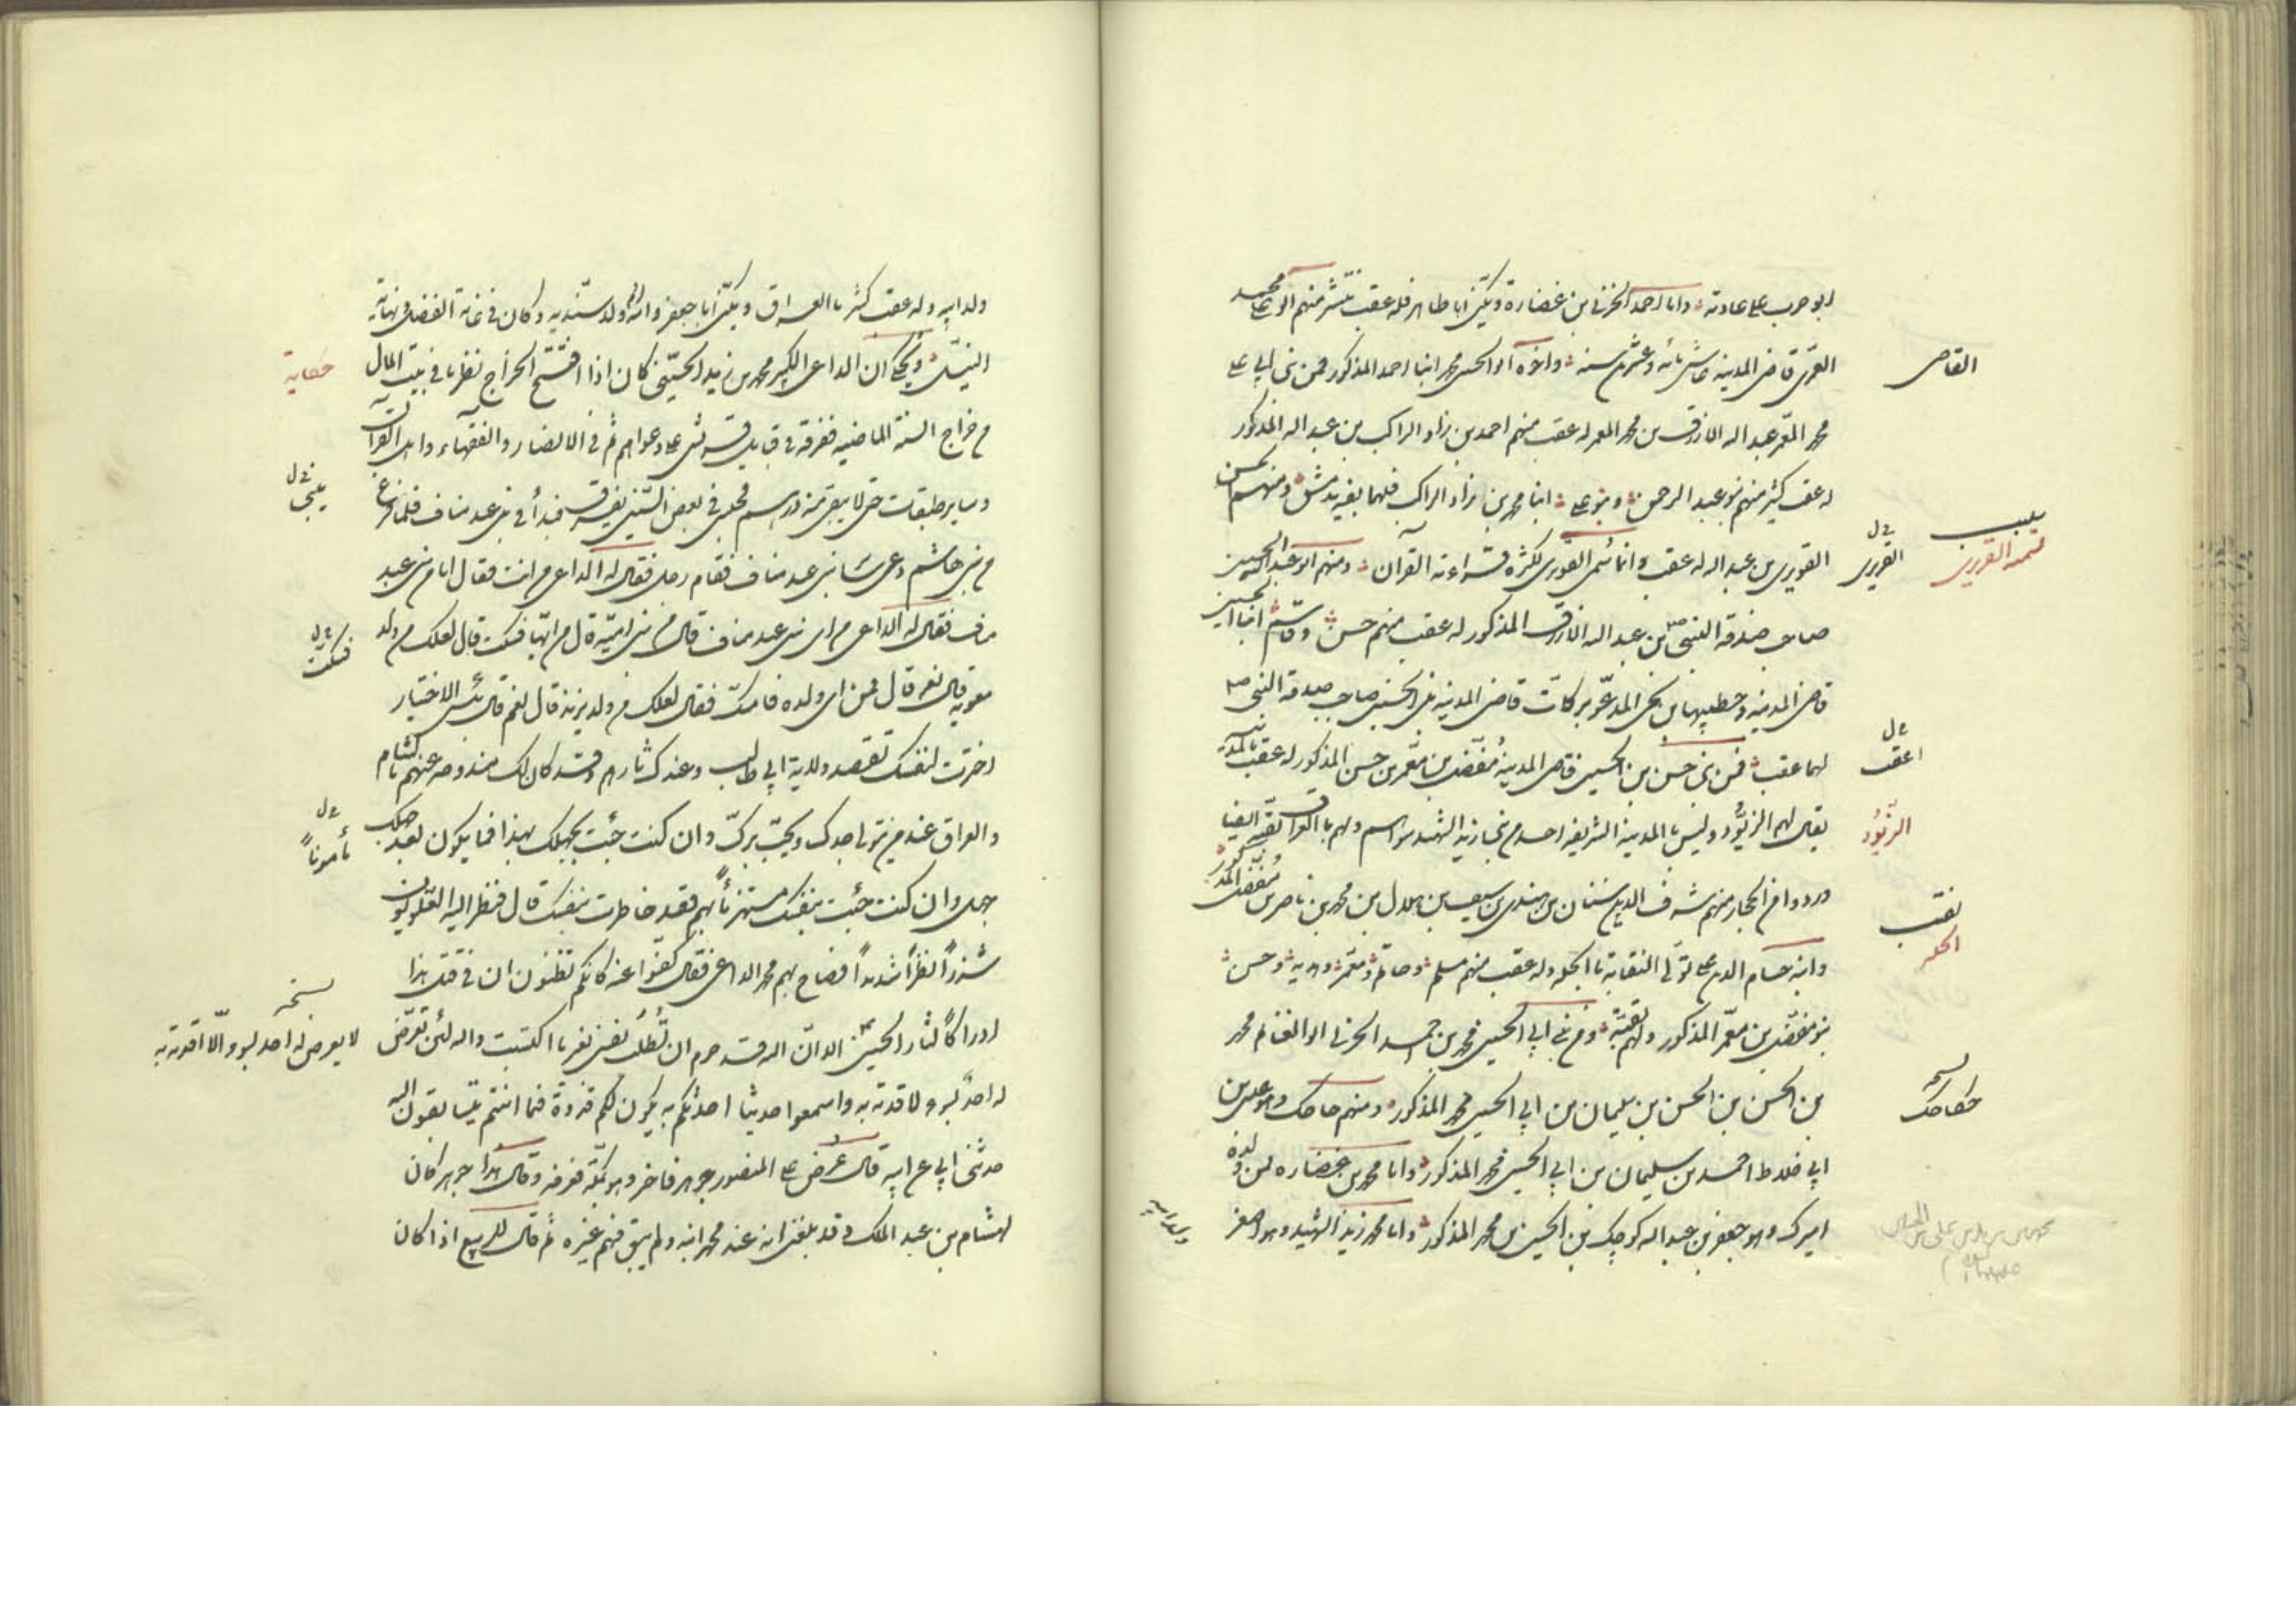 ابو حرب على عادته واما احمد الحزنى بن غضارة ويكنى ابا طاهر فله عقب منتشر منهم ابو على محمد
المعمر قاضى المدينة عاش مائه وعشرين سنه واخوه ابو الحسن محمد ابنا احمد المذكور فمن بنى ابى على
محمد المعمر عبد الله الازرق بن محمد المعمر له عقب منهم احمد بن زاد الراكب بن عبد الله المذكور
له عقب كثير منهم بنو عبد الرحمن وبنو على ابنا محمد بن زاد الراكب فلهما بقية بدمشق ومنهم الحسن
القويرى بن عبد الله له عقب وانما سمى القويرى لكثرة قراءته القرآن ومنهم ابو عبد الله الحسين
صاحب صدقة النبى ص بن عبد الله الازرق المذكور له عقب منهم حسن وقاسم ابنا الحسين
قاضى المدينه وخطيبها بن يحيى المدعو بركات قاضى المدينه بن الحسين صاحب صدقة النبى ص
لهما عقب فمن بنى حسن بن الحسين قاضى المدينة مفضل بن معمر بن حسن المذكور له عقب بالمدينه
يقال لهم الزيود وليس بالمدينة الشريفه احد من بنى زيد الشهيد سواهم ولهم بالعراق بقيه ايضا
وردوا من الحجاز منهم شرف الدين سنان بن مهندى بن سيف بن هلال بن محمد بن ناصر بن مفضل المذكور
وابنه حسام الدين على تولى النقابة بالحله وله عقب منهم مسلم وصالح ومعمر وهديه وحسن
بنو مفضل بن معمر المذكور ولهم بقية ومن بنى ابى الحسين محمد بن احمد الحزنى ابو الغنائم محمد
بن الحسن بن الحسن بن سليمان بن ابى الحسين محمد المذكور ومنهم حاحك وهو على بن
ابى ضلاط احمد بن سليمان بن ابى الحسين محمد المذكور واما محمد بن غضاره فمن ولده
اميرك وهو جعفر بن عبد الله كوچك بن الحسين بن محمد المذكور واما محمد بن زيد الشهيد وهو اصغر
القاضى
القويرى
تتمه القويرى
اعقب
الزيود
نقيب
الحله
نسخه
ولد ابيه
ولد ابيه وله عقب كثير بالعراق ويكنى ابا جعفر وامه ام ولد سنديه وكان فى غاية الفضل ونهاية
النبل ويحكى ان الداعى الكبير محمد بن زيد الحسنى كان اذا افتتح الخراج نظر ما فى بيت المال
من خراج السنة الماضيه ففرقه فى قبايل قريش على دعواهم ثم فى الانصار والفقهاء واهل القرآن
وساير طبقات حتى لا يبقى منه درهم فجلس فى بعض السنين يفرق فبدأ فى بنى عبد مناف فلما فرغ
من بنى هاشم دعى سائر بنى عبد مناف فقام رجل فقال له الداعى من انت فقال انا من بنى عبد
مناف فقال له الداعى من اى بنى عبد مناف قال من بنى امية قال من ايها فسكت قال لعلك من ولد
معويه قال نعم قال فمن اى ولده فامسك فقال لعلك من ولد يزيد قال نعم قال بئس الاختيار
اخترت لنفسك تقصد ولاية ابى طالب وعندك ثارهم وقد كان لك مندوحه عنهم بالشام
والعراق عند من يتولى جدك ويحب برك وان كنت جئت بجهلك بهذا فما يكون بعد جهلك
جهل وان كنت جئت بنفسك مستهزئاً بهم فقد خاطرت بنفسك قال فنظر اليه العلويون
شزراً نظراً شديداً فصاح بهم محمد الداعى فقال كفوا عنه كانكم تظنون ان فى قتل هذا
ادراكاً لثار الحسين الا وان الله قد حرم ان تُطلب نفس بغير ما اكتسبت والله لئن تعرض
له احد بسوء لاقدته به واسمعوا حديثا احدثكم به يكون لكم قدوة فيما انتم بسبيله
حدثنى ابى عن ابيه قال عُرض على المنصور جوهر فاخر وهو بمكة فعرفه وقال هذا جوهر كان
لهشام بن عبد الملك وقد بلغنى انه عند محمد ابنه ولم يبق منهم غيره ثم قال للربيع اذا كان
حكاية
فسكت
مأموناً
نسخه
لا يعرض له احد بسوء الا اقدته به